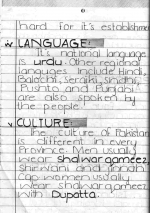 hard for it's establishmen
iv LANGUAGE:
It's national language
is urdu. Other regional
languages include Hindi,
Balochi, Seraiki, Sindhi,
Pushto and Punjabi
are also spoken by
the people.
v CULTURE:
The culture of Pakistan
is different in every
Province. Men usually
wear shalwar qameez,
Shirwani and Jinnah
Cap. women usually
wear shalwar qameez
with Dupatta.